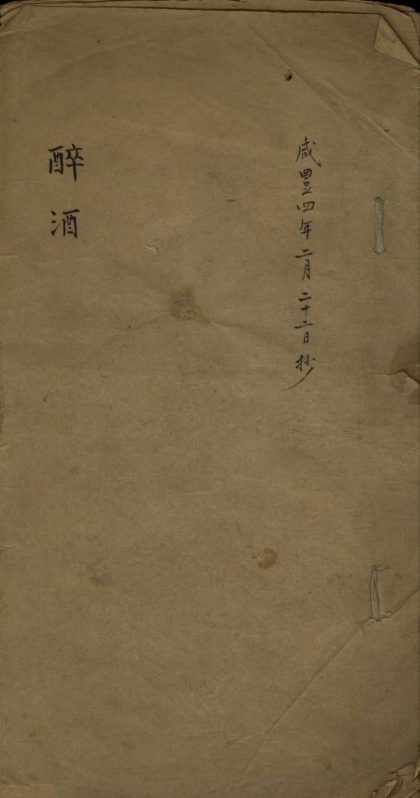 咸豐四年二月二十二日抄
醉酒